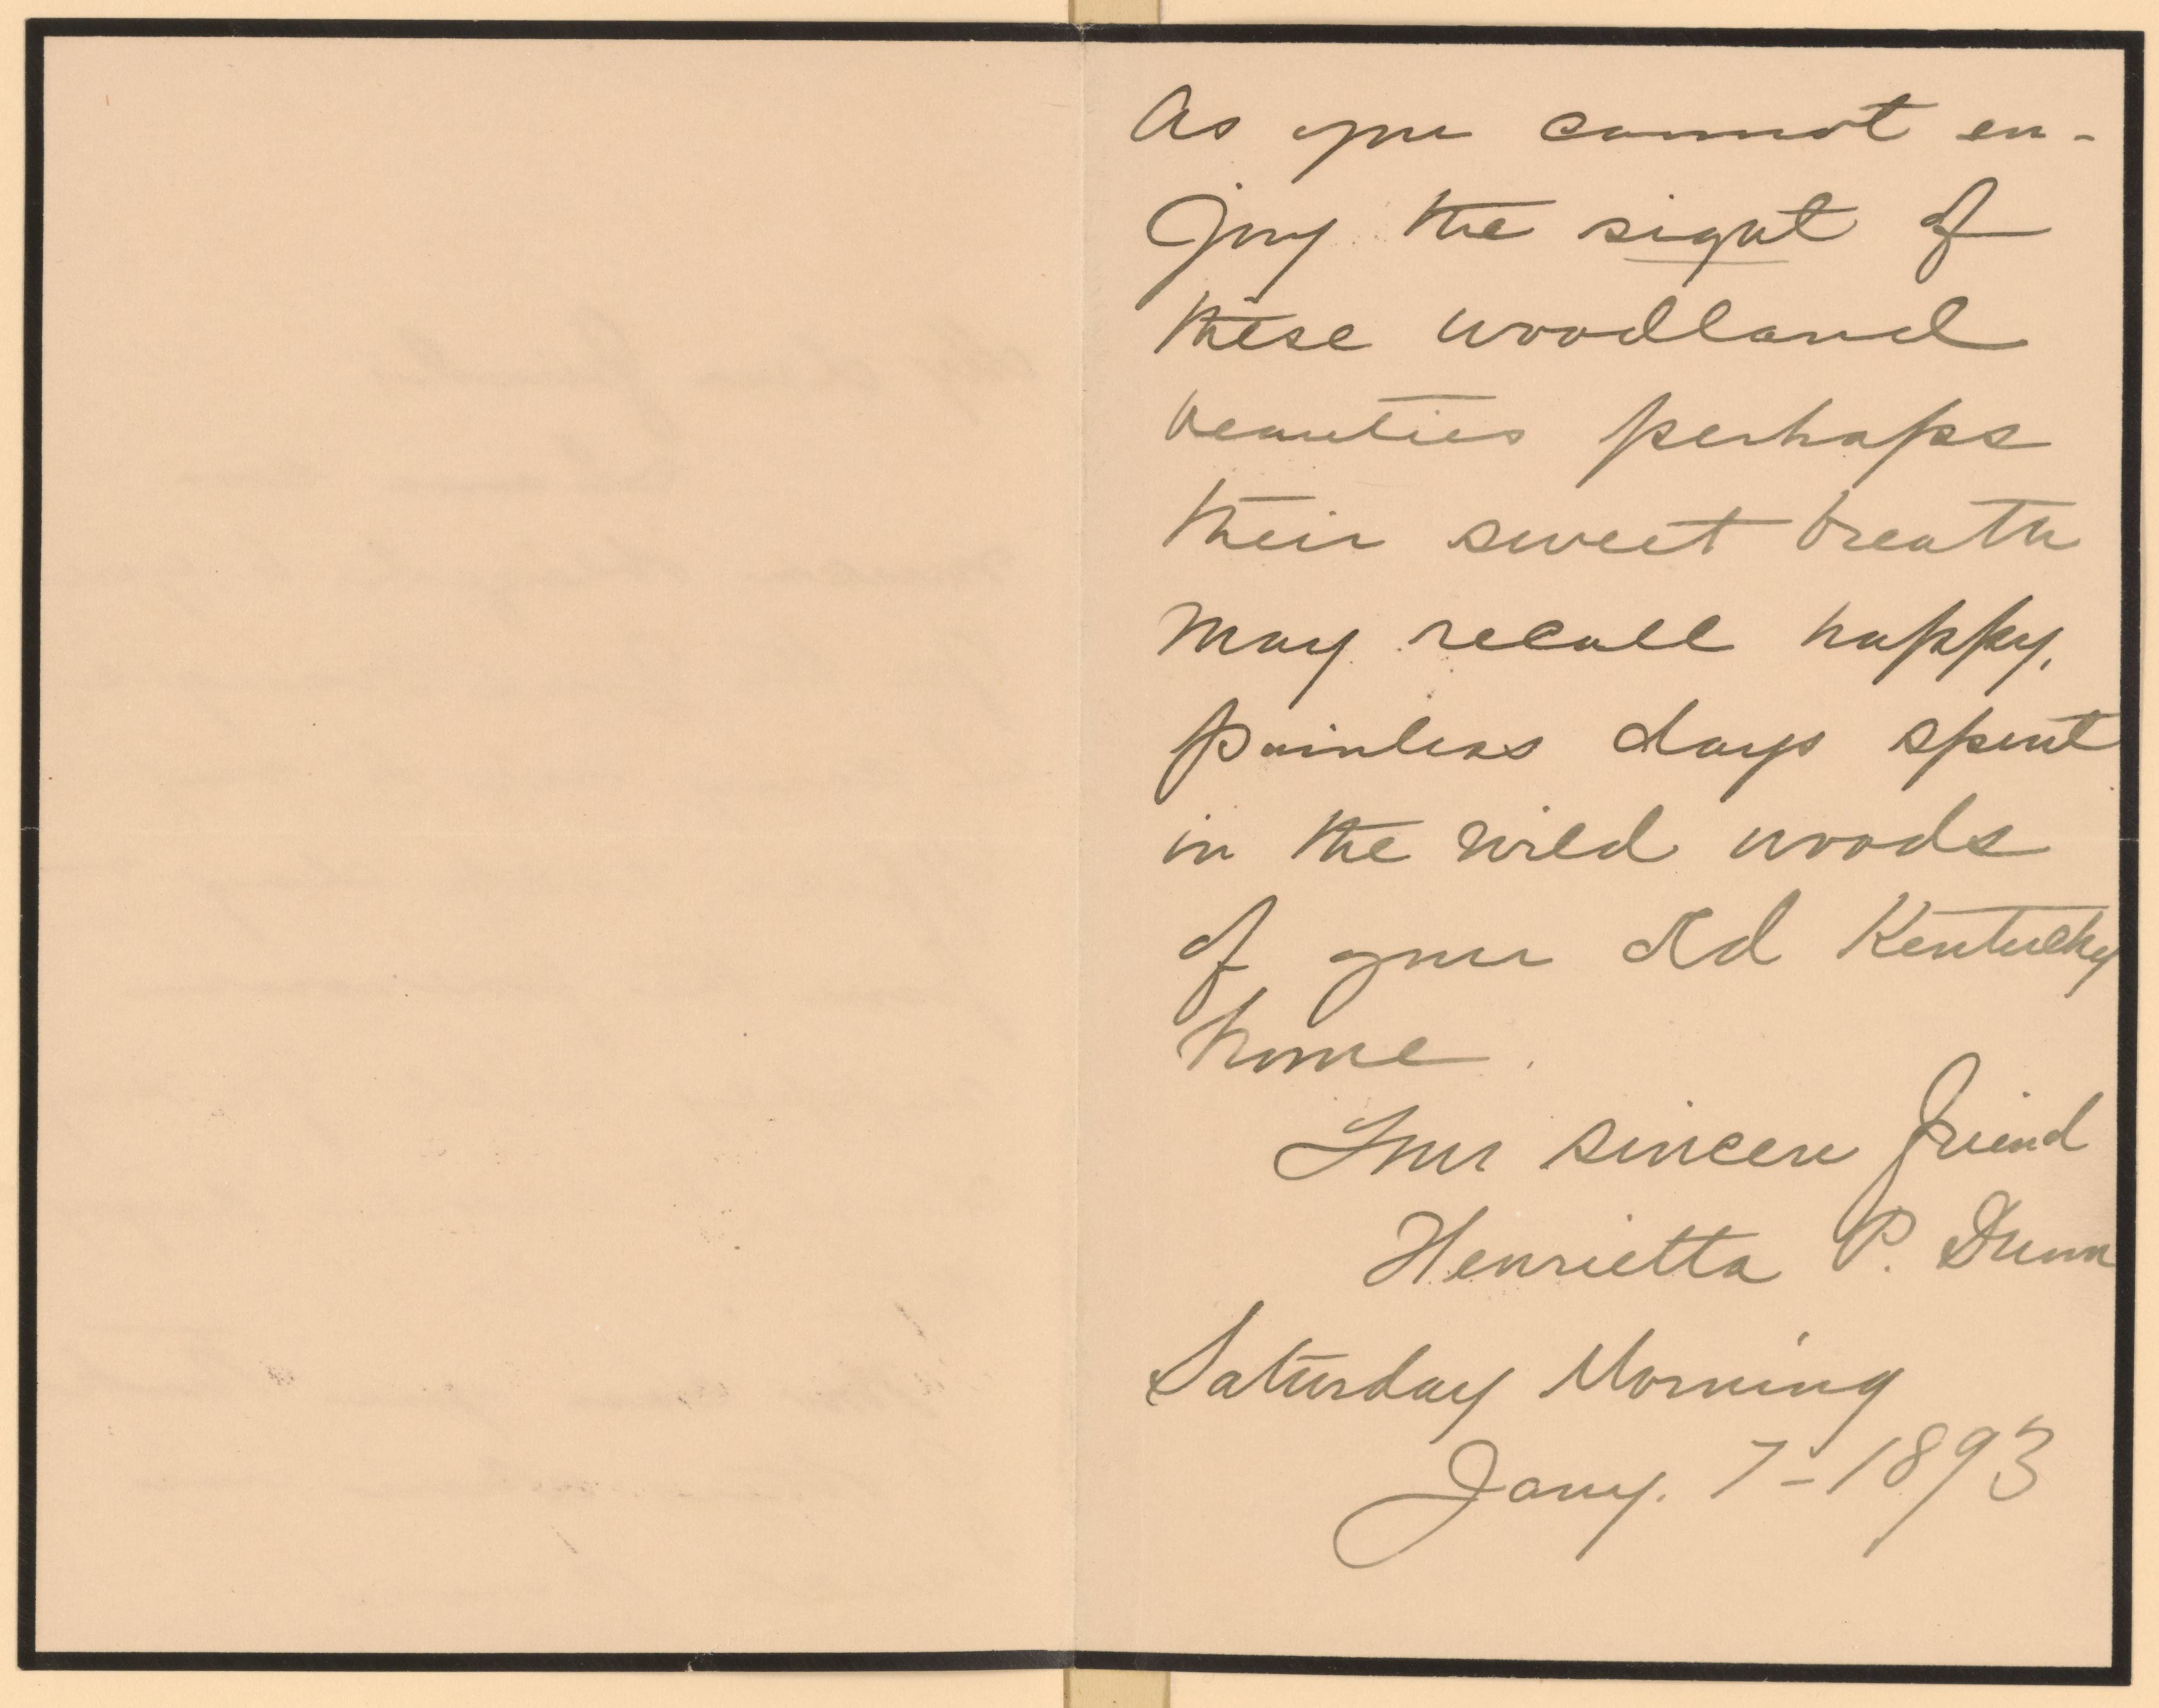 As you cannot en-
joy the sight of
these woodland
beauties perhaps
their sweet breath
may recall happy,
painless days spent
in the wild woods
of your old Kentucky
home.
Your sincere friend
Henrietta P. Dunn
Saturday Morning
Jany. 7 - 1893